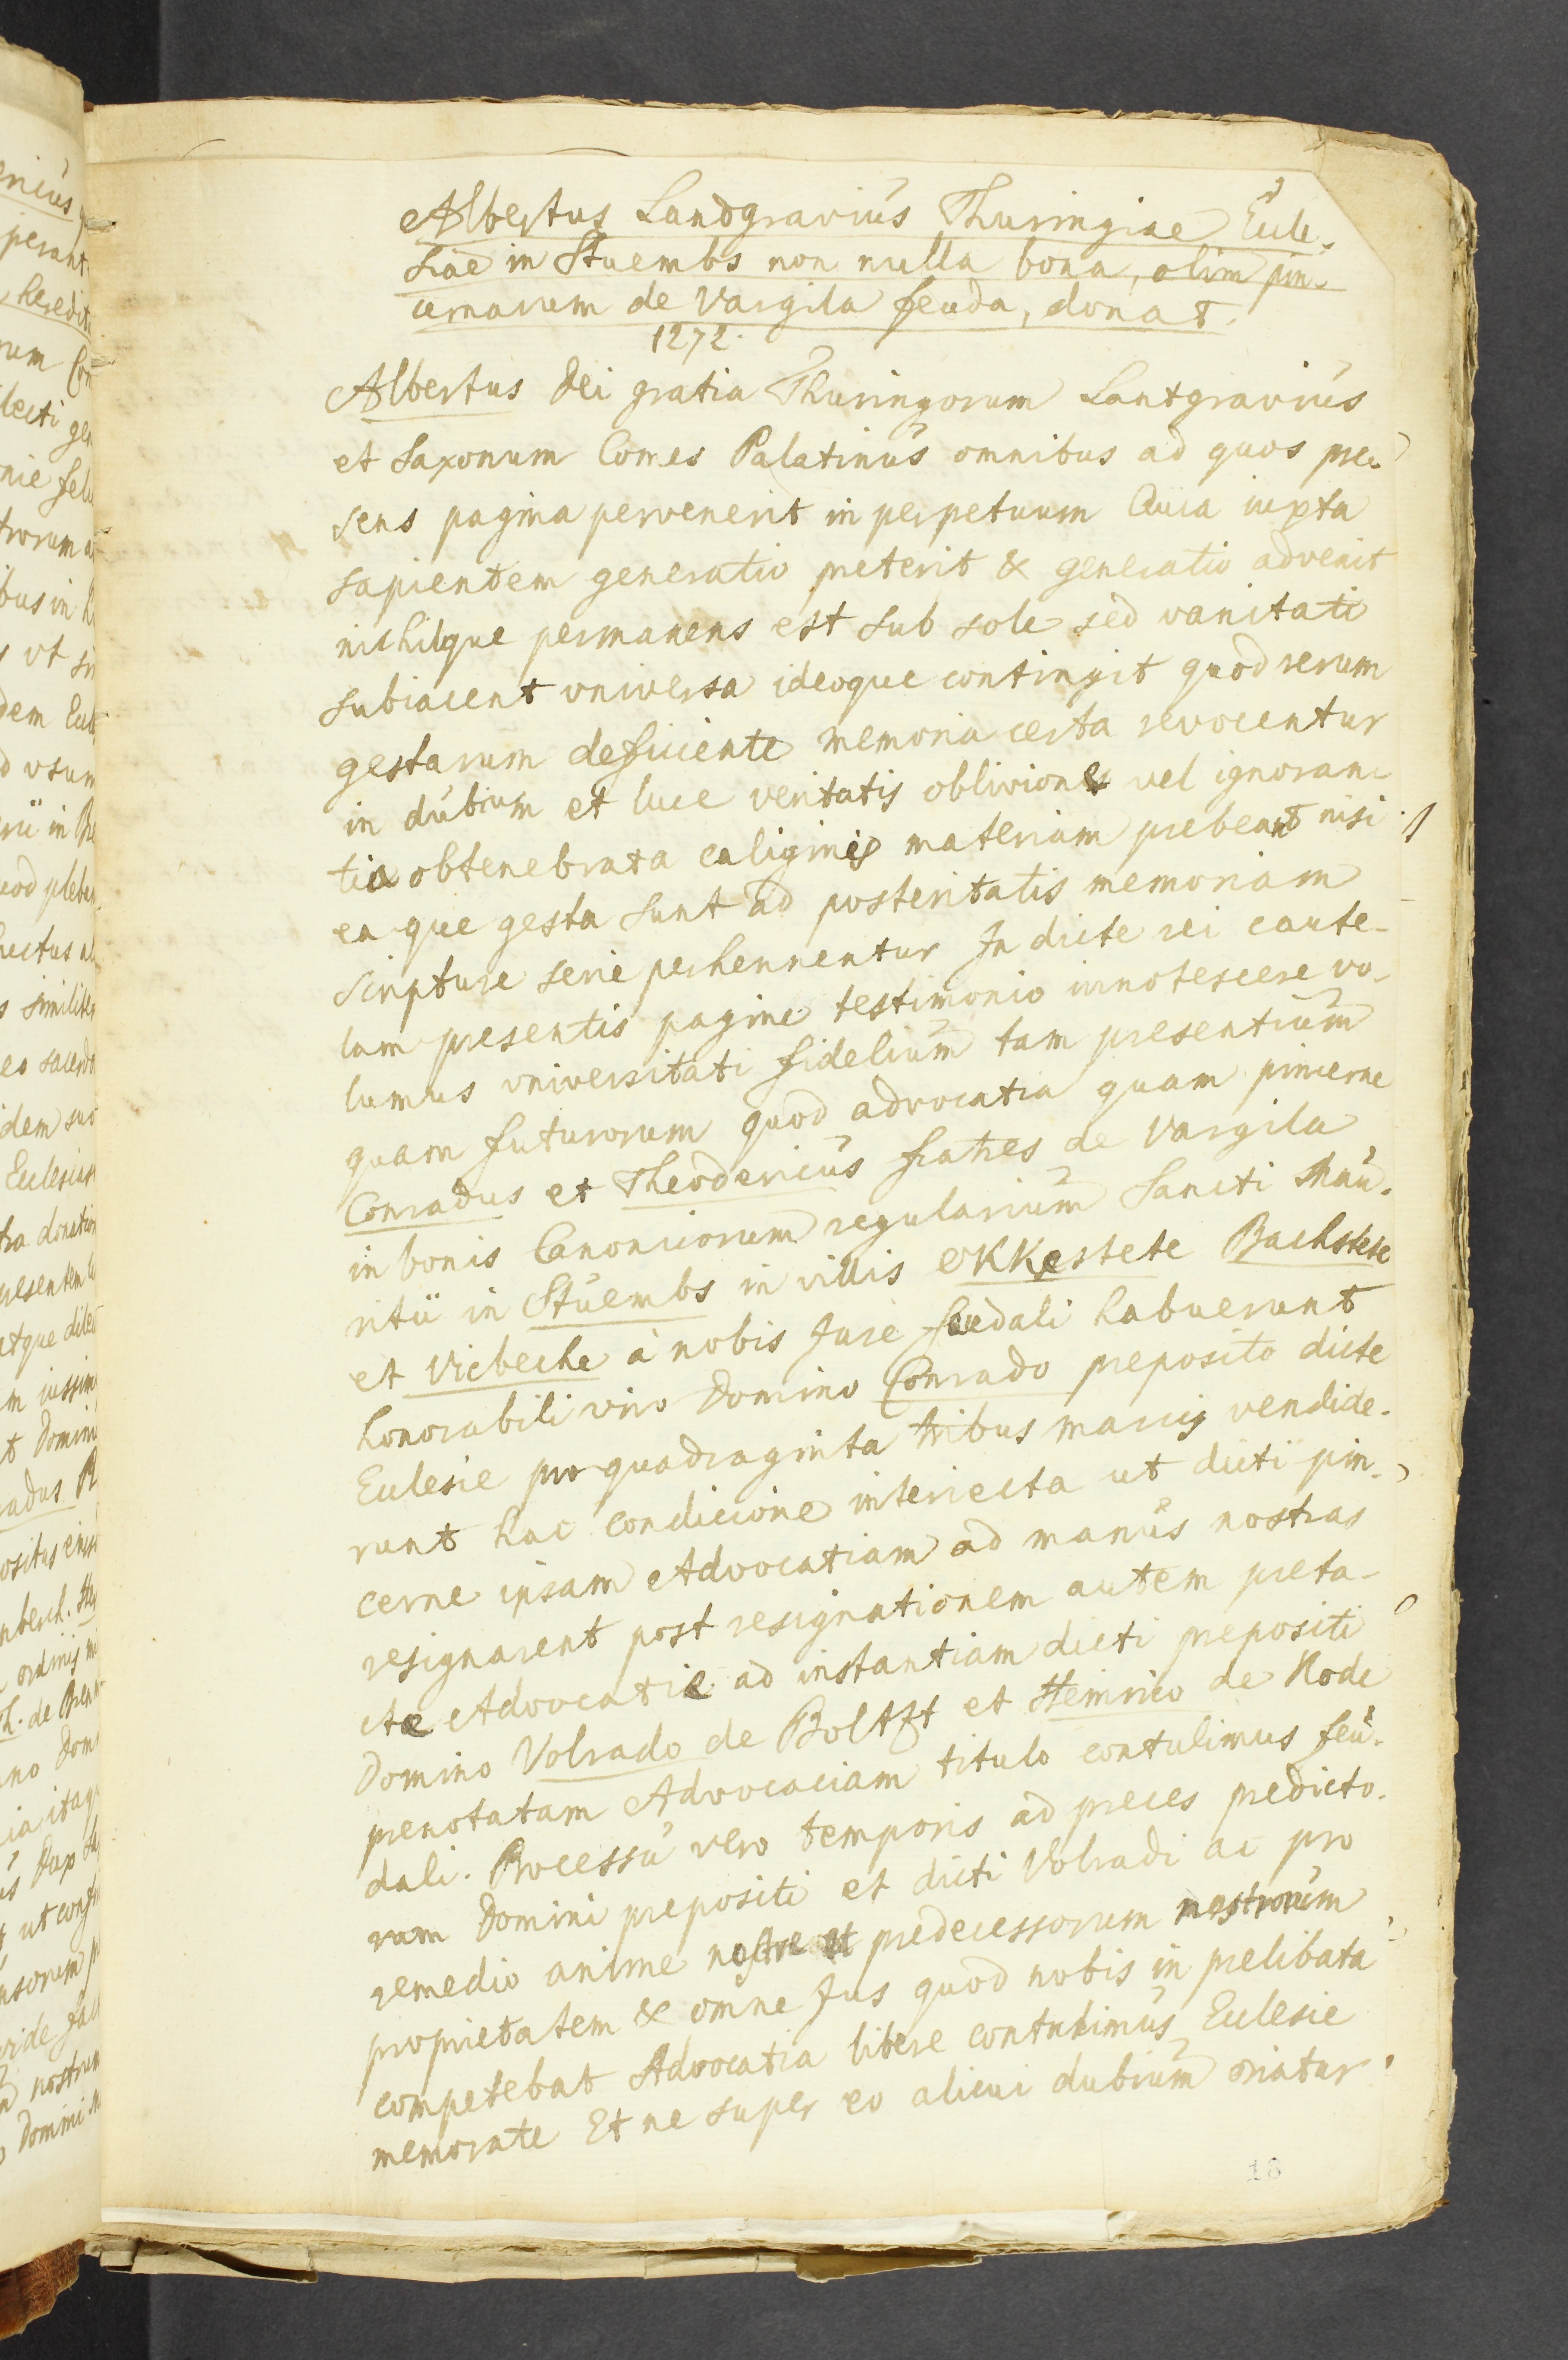 Albertus Landgravius Thuringiae Eccle-
siae in Stuembs non nulla bona, olim pin-
cernarum de Vargila feuda, donat.
1272.
Albertus Dei gratia Thuringorum Lantgravius
et Saxonum Comes Palatinus omnibus ad quos pre-
sens pagina pervenerit in perpetuum Quia iuxta
sapientem generatio preterit & generatio advenit
nichilque permanens est sub sole sed vanitati
subiacent vniversa ideoque contingit quod rerum
gestarum deficiente memoria certa revocentur
in dubium et luce veritatis oblivione vel ignoran-
tia obtenebrata caliginis materiam prebeant nisi
ea que gesta sunt ad posteritatis memoriam
scripture serie perhennentur In dicte rei caute-
lam presentis pagine testimonio innotescere vo-
lumus vniversitati fidelium tam presentium
quam futurorum quod advocatia quam pincerne
Conradus et Theodericus fratres de Vargila
in bonis Canonicorum regularium Sancti Mau-
ritii in Stuembs in villis Ekkestete Bachstete
et Vicbeche a nobis Jure feudali habuerunt
honorabili viro Domino Conrado preposito dicte
Ecclesie pro quadraginta tribus marcis vendide-
runt hac condicione interiecta ut dicti pin-
cerne ipsam Advocatiam ad manus nostras
resignarent post resignationem autem preta-
cte Advocatie ad instantiam dicti prepositi
Domino Volrado de Boltzt et Heinrico de Rode
prenotatam Advocaciam titulo contulimus feu-
dali. Processu vero temporis ad preces predicto-
rum Domini prepositi et dicti Volradi ac pro
remedio anime nostre et predecessorum nostrorum
proprietatem & omne Jus quod nobis in prelibata
competebat Advocatia libere contulimus Ecclesie
memorate Et ne super eo alicui dubium oriatur
18